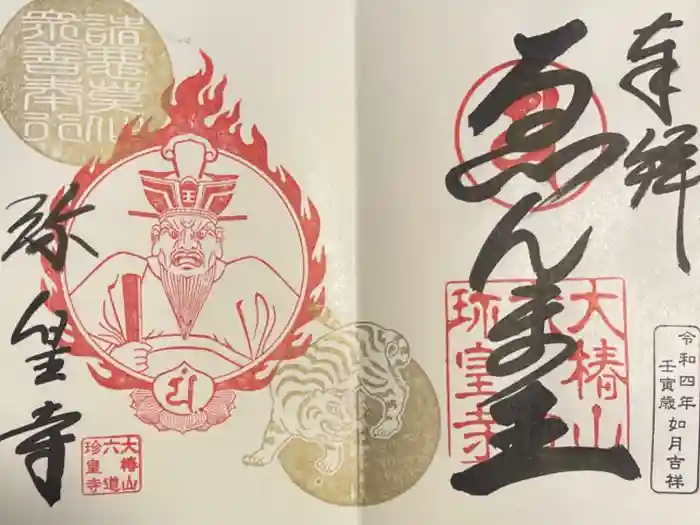 奉拝
ゑんま王
大椿山
六道
珍皇寺
令和四年 如月吉祥
壬寅歳
諸悪莫作
衆善奉行
王
珍皇寺
大椿山
六道
珍皇寺